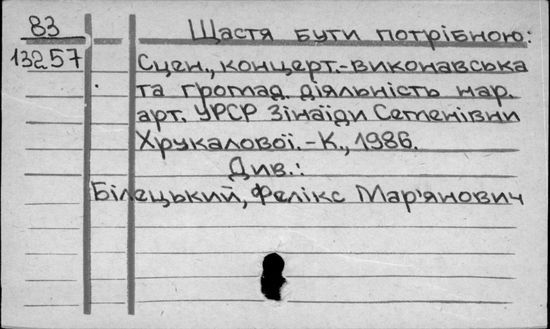 83
13257
Щастя бути потрібною:
Сцен., концерт.-виконавська
та громад. діяльність нар.
арт. УРСР Зінаїди Семенівни
Хрукалової. - К., 1986.
Див.:
Білецький, Фелікс Мар'янович